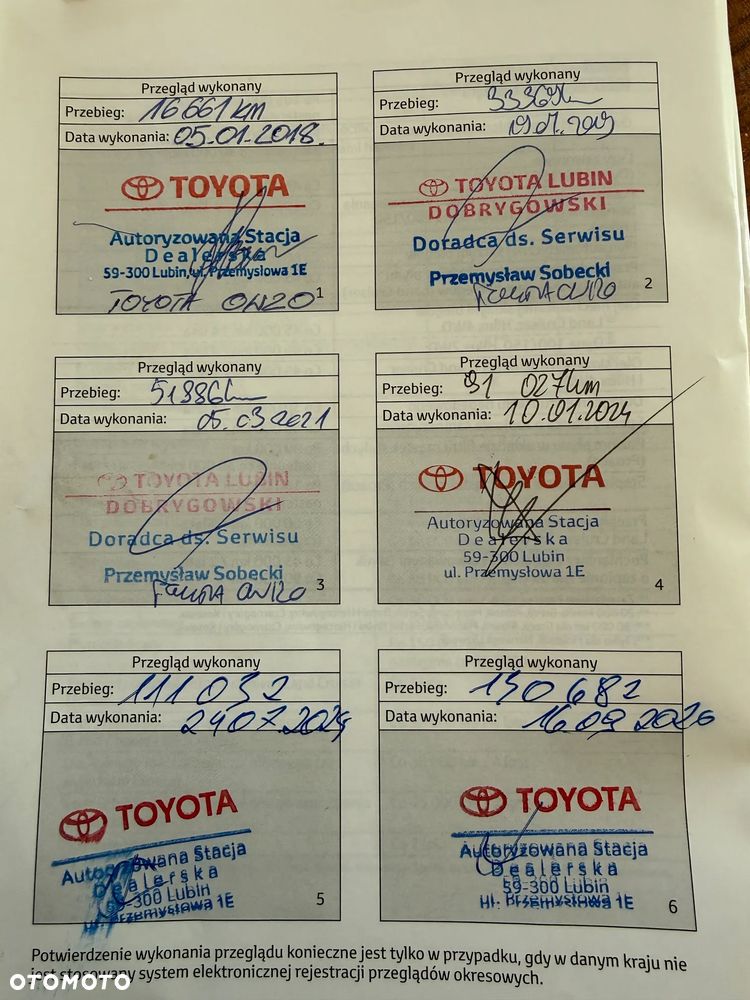 Przegląd wykonany
Przebieg: 16 661 km
Data wykonania: 05.01.2018.
TOYOTA
Autoryzowana Stacja
Dealerska
59-300 Lubin, ul. Przemysłowa 1E
TOYOTA OW20
1
Przegląd wykonany
Przebieg:
Data wykonania:
TOYOTA LUBIN
DOBRYGOWSKI
Doradca ds. Serwisu
Przemysław Sobecki
2
Przegląd wykonany
Przebieg:
Data wykonania: 05.03 2021
TOYOTA LUBIN
DOBRYGOWSKI
Doradca ds. Serwisu
Przemysław Sobecki
3
Przegląd wykonany
Przebieg: 91 027 km
Data wykonania: 10.01.2024
TOYOTA
Autoryzowana Stacja
Dealerska
59-300 Lubin
ul. Przemysłowa 1E
4
Przegląd wykonany
Przebieg: 111 032
Data wykonania:
TOYOTA
Autoryzowana Stacja
Dealerska
59-300 Lubin
ul. Przemysłowa 1E
5
Przegląd wykonany
Przebieg:
Data wykonania:
TOYOTA
Autoryzowana Stacja
Dealerska
59-300 Lubin
ul. Przemysłowa 1E
6
Potwierdzenie wykonania przeglądu konieczne jest tylko w przypadku, gdy w danym kraju nie
jest stosowany system elektronicznej rejestracji przeglądów okresowych.
OTOMOTO